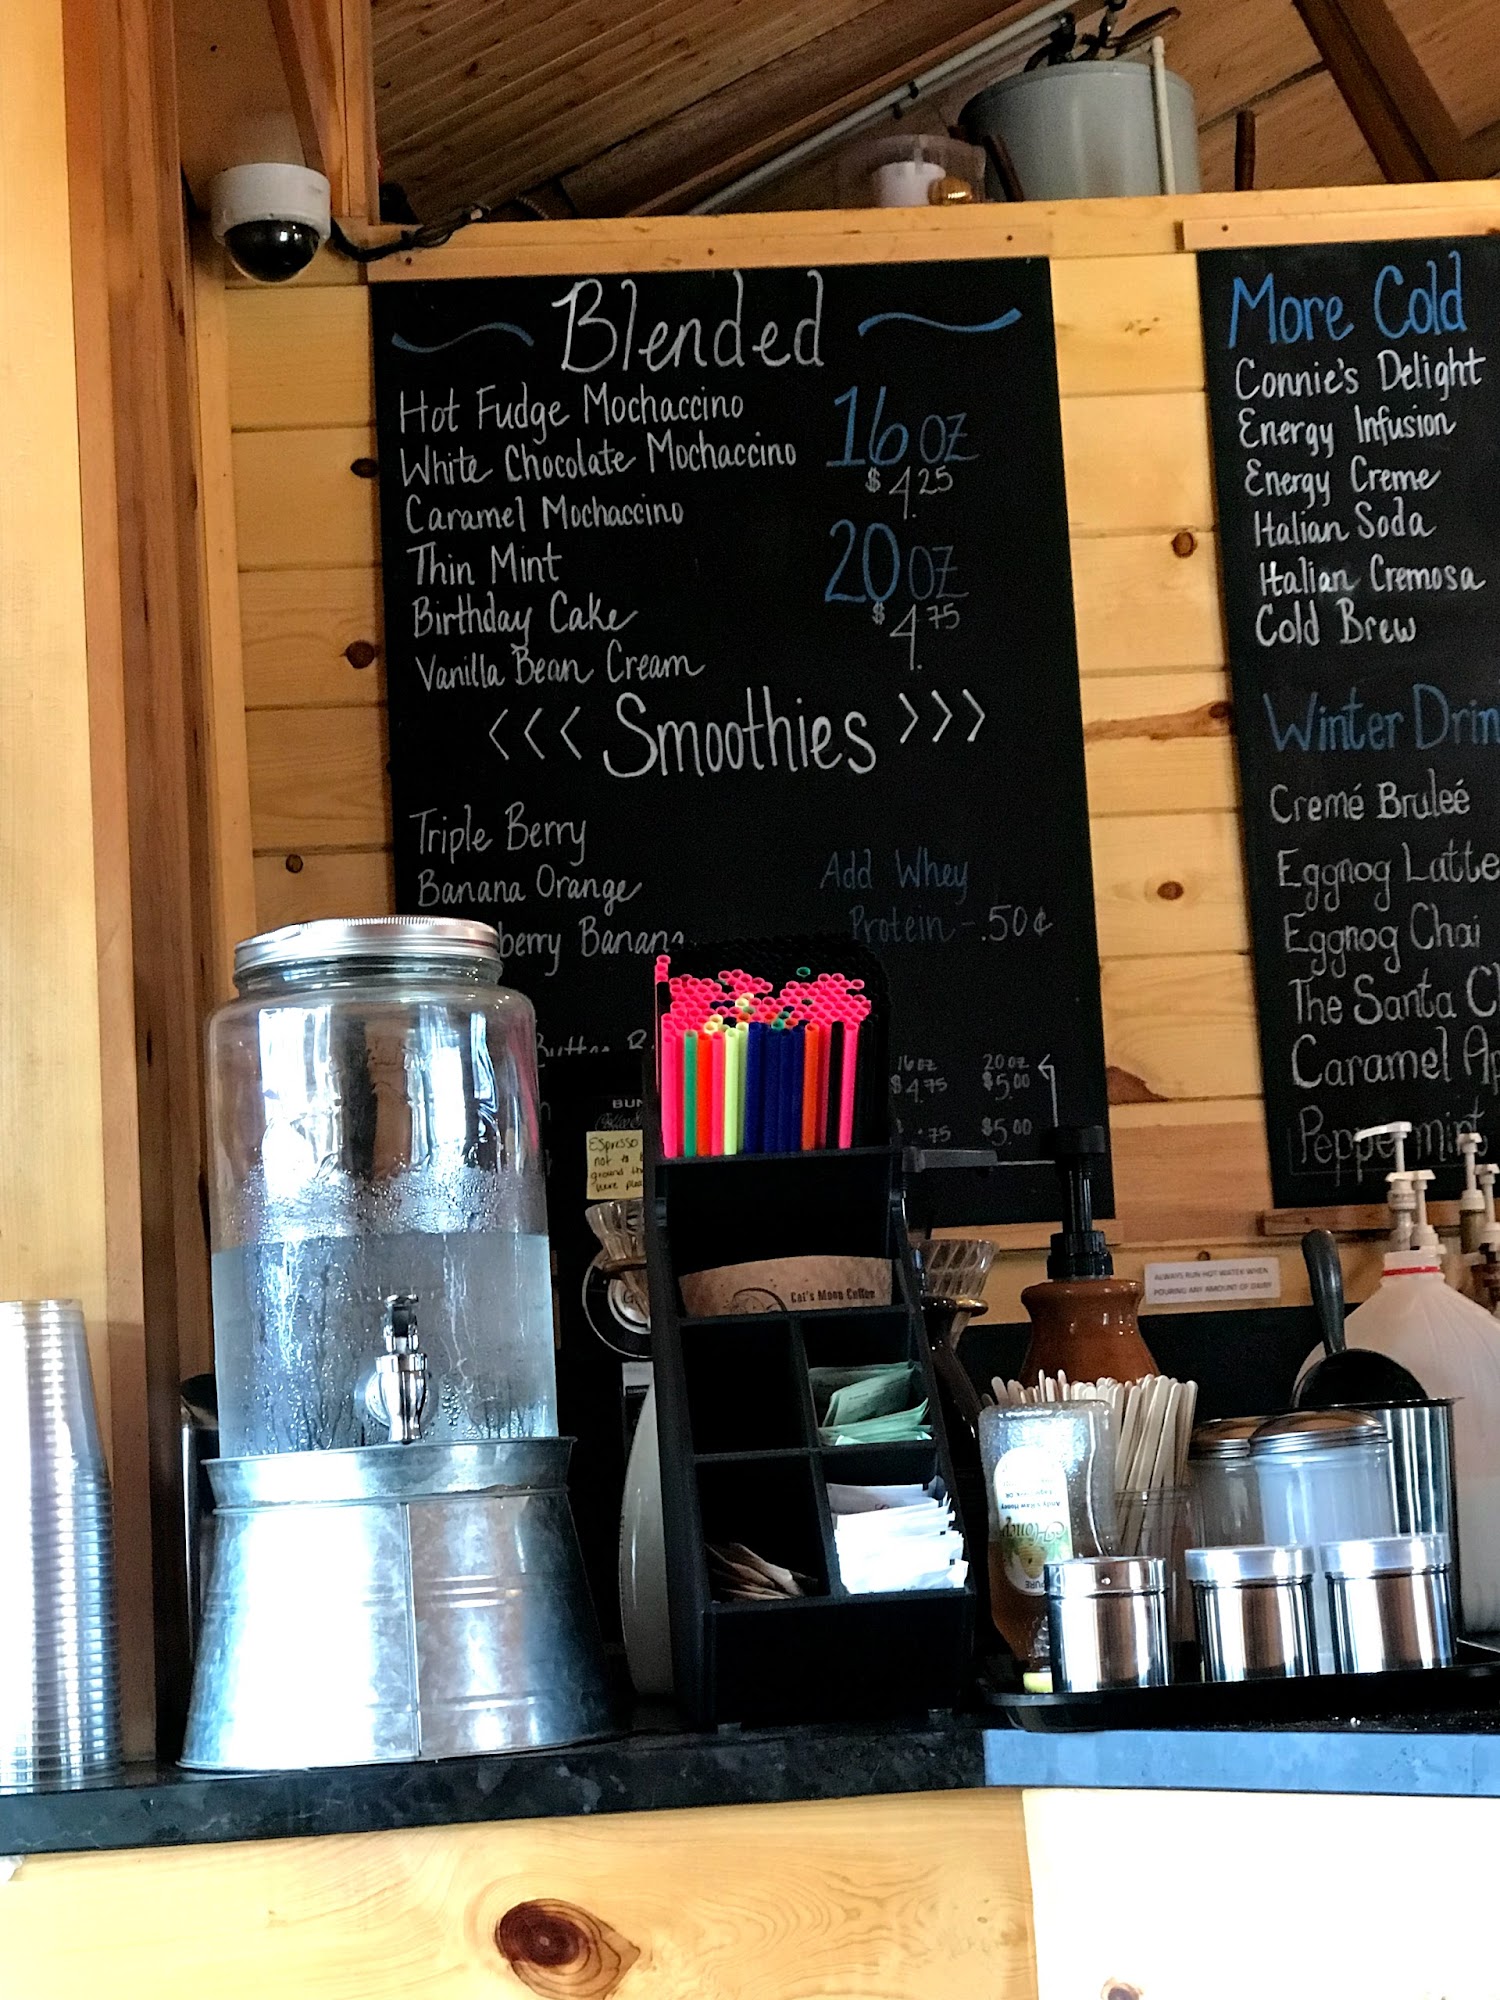 Blended
Hot Fudge Mochaccino
White Chocolate Mochaccino
Caramel Mochaccino
Thin Mint
Birthday Cake
Vanilla Bean Cream
16 oz
$4.25
20 oz
$4.75
<<< Smoothies >>>
Triple Berry
Banana Orange
berry Banana
Add Whey
Protein - .50¢
16 oz 20 oz
$4.75 $5.00
.75 $5.00
More Cold
Connie's Delight
Energy Infusion
Energy Creme
Italian Soda
Italian Cremosa
Cold Brew
Winter Drin
Cremé Bruleé
Eggnog Latte
Eggnog Chai
The Santa C
Caramel Ap
Peppermint
BUN
Espresso
not to
ground
here
Cat's Moon Coffee
ALWAYS RUN HOT WATER WHEN
POURING ANY AMOUNT OF DAIRY
Honey
PURE